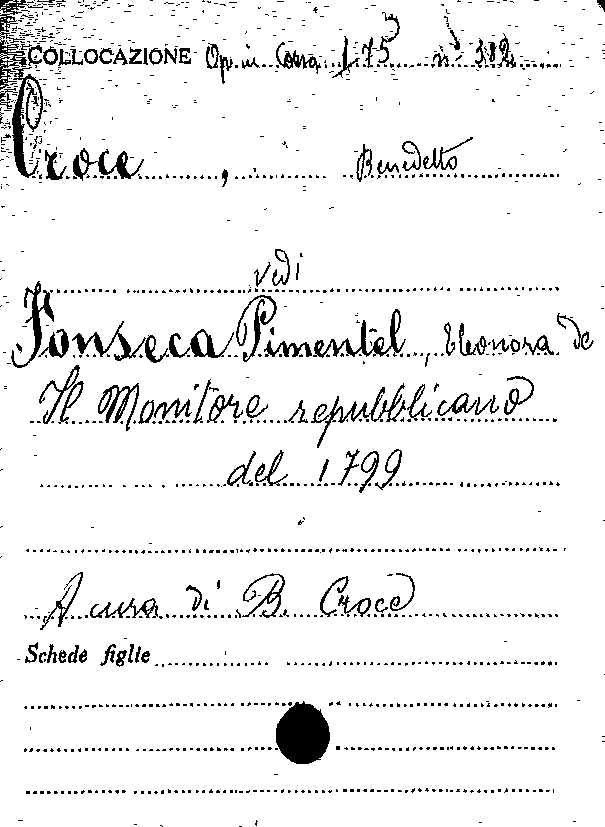 COLLOCAZIONE Op. in Corso f 75 n° 382
Croce, Benedetto
vedi
Fonseca Pimentel, Eleonora de
Il Monitore repubblicano
del 1799
A cura di B. Croce
Schede figlie